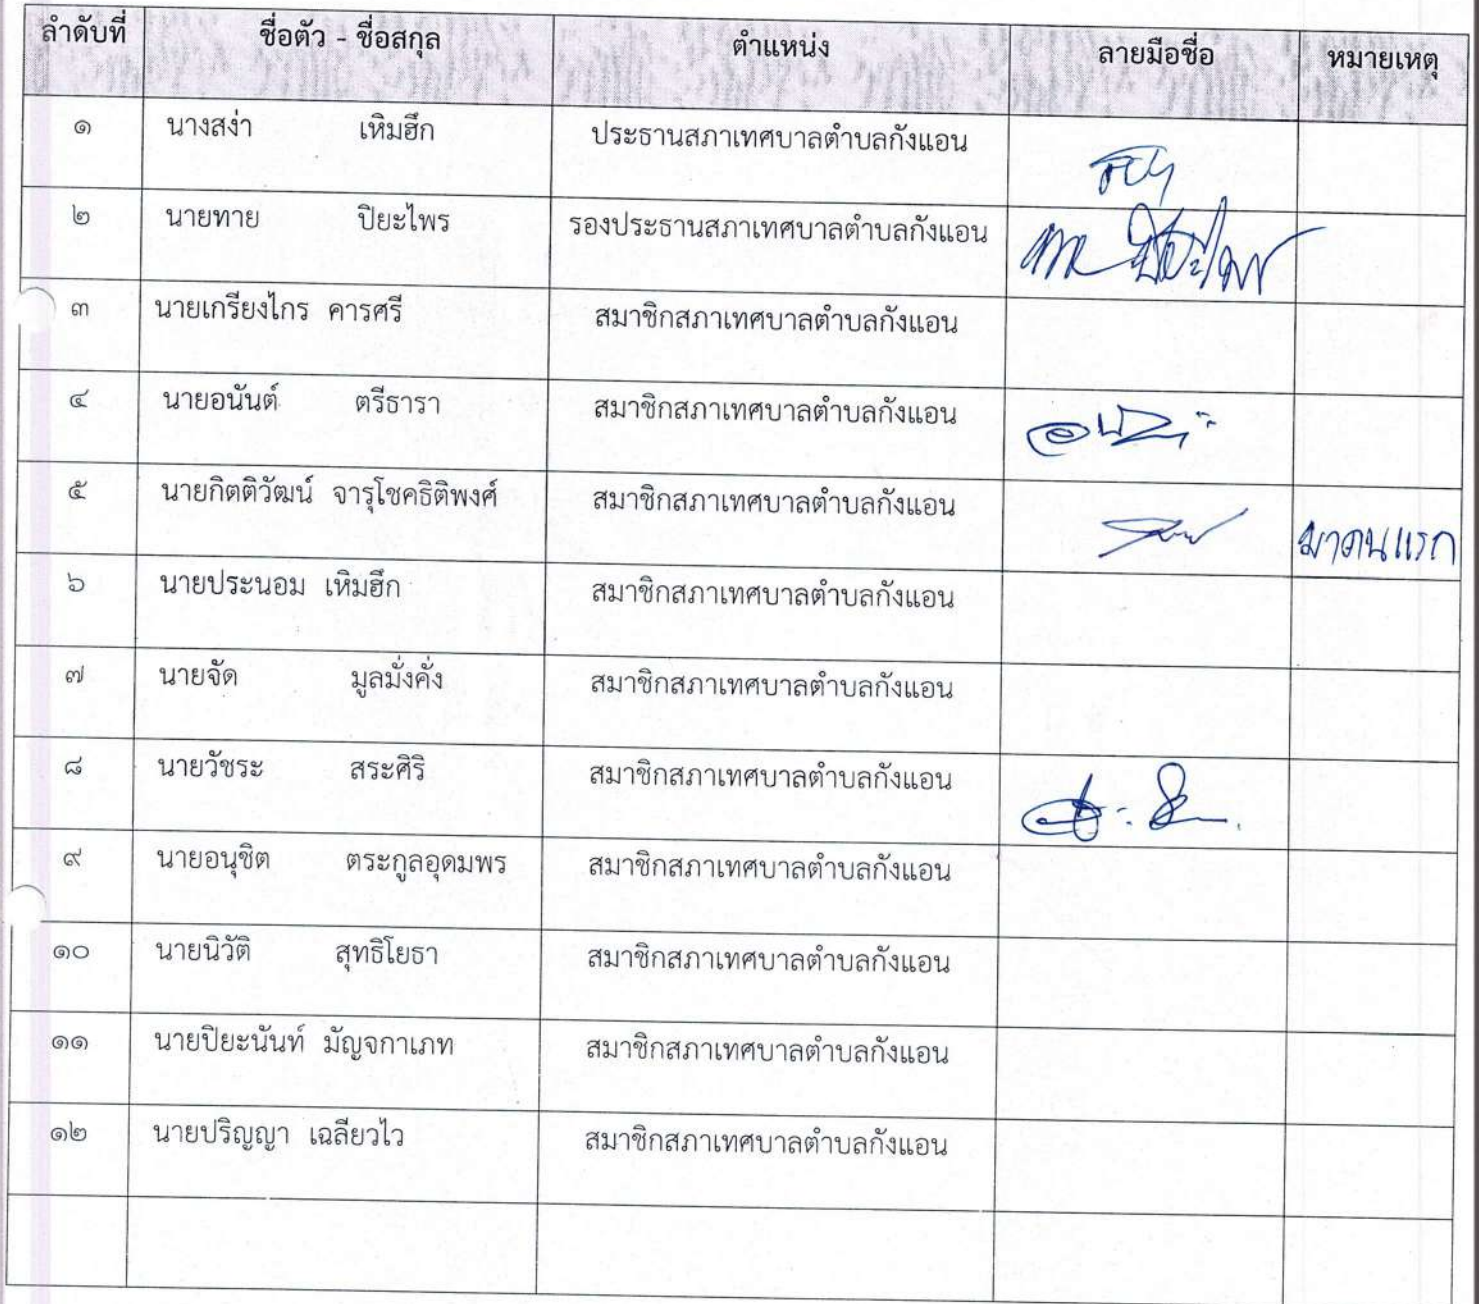 ลำดับที่ ชื่อตัว - ชื่อสกุล ตำแหน่ง ลายมือชื่อ หมายเหตุ
๑ นางสง่า เหิมฮึก ประธานสภาเทศบาลตำบลกังแอน
๒ นายทาย ปิยะไพร รองประธานสภาเทศบาลตำบลกังแอน
๓ นายเกรียงไกร คารศรี สมาชิกสภาเทศบาลตำบลกังแอน
๔ นายอนันต์ ตรีธารา สมาชิกสภาเทศบาลตำบลกังแอน
๕ นายกิตติวัฒน์ จารุโชคธิติพงศ์ สมาชิกสภาเทศบาลตำบลกังแอน มาคนแรก
๖ นายประนอม เหิมฮึก สมาชิกสภาเทศบาลตำบลกังแอน
๗ นายจัด มูลมั่งคั่ง สมาชิกสภาเทศบาลตำบลกังแอน
๘ นายวัชระ สระศิริ สมาชิกสภาเทศบาลตำบลกังแอน
๙ นายอนุชิต ตระกูลอุดมพร สมาชิกสภาเทศบาลตำบลกังแอน
๑๐ นายนิวัติ สุทธิโยธา สมาชิกสภาเทศบาลตำบลกังแอน
๑๑ นายปิยะนันท์ มัญจกาเภท สมาชิกสภาเทศบาลตำบลกังแอน
๑๒ นายปริญญา เฉลียวไว สมาชิกสภาเทศบาลตำบลกังแอน